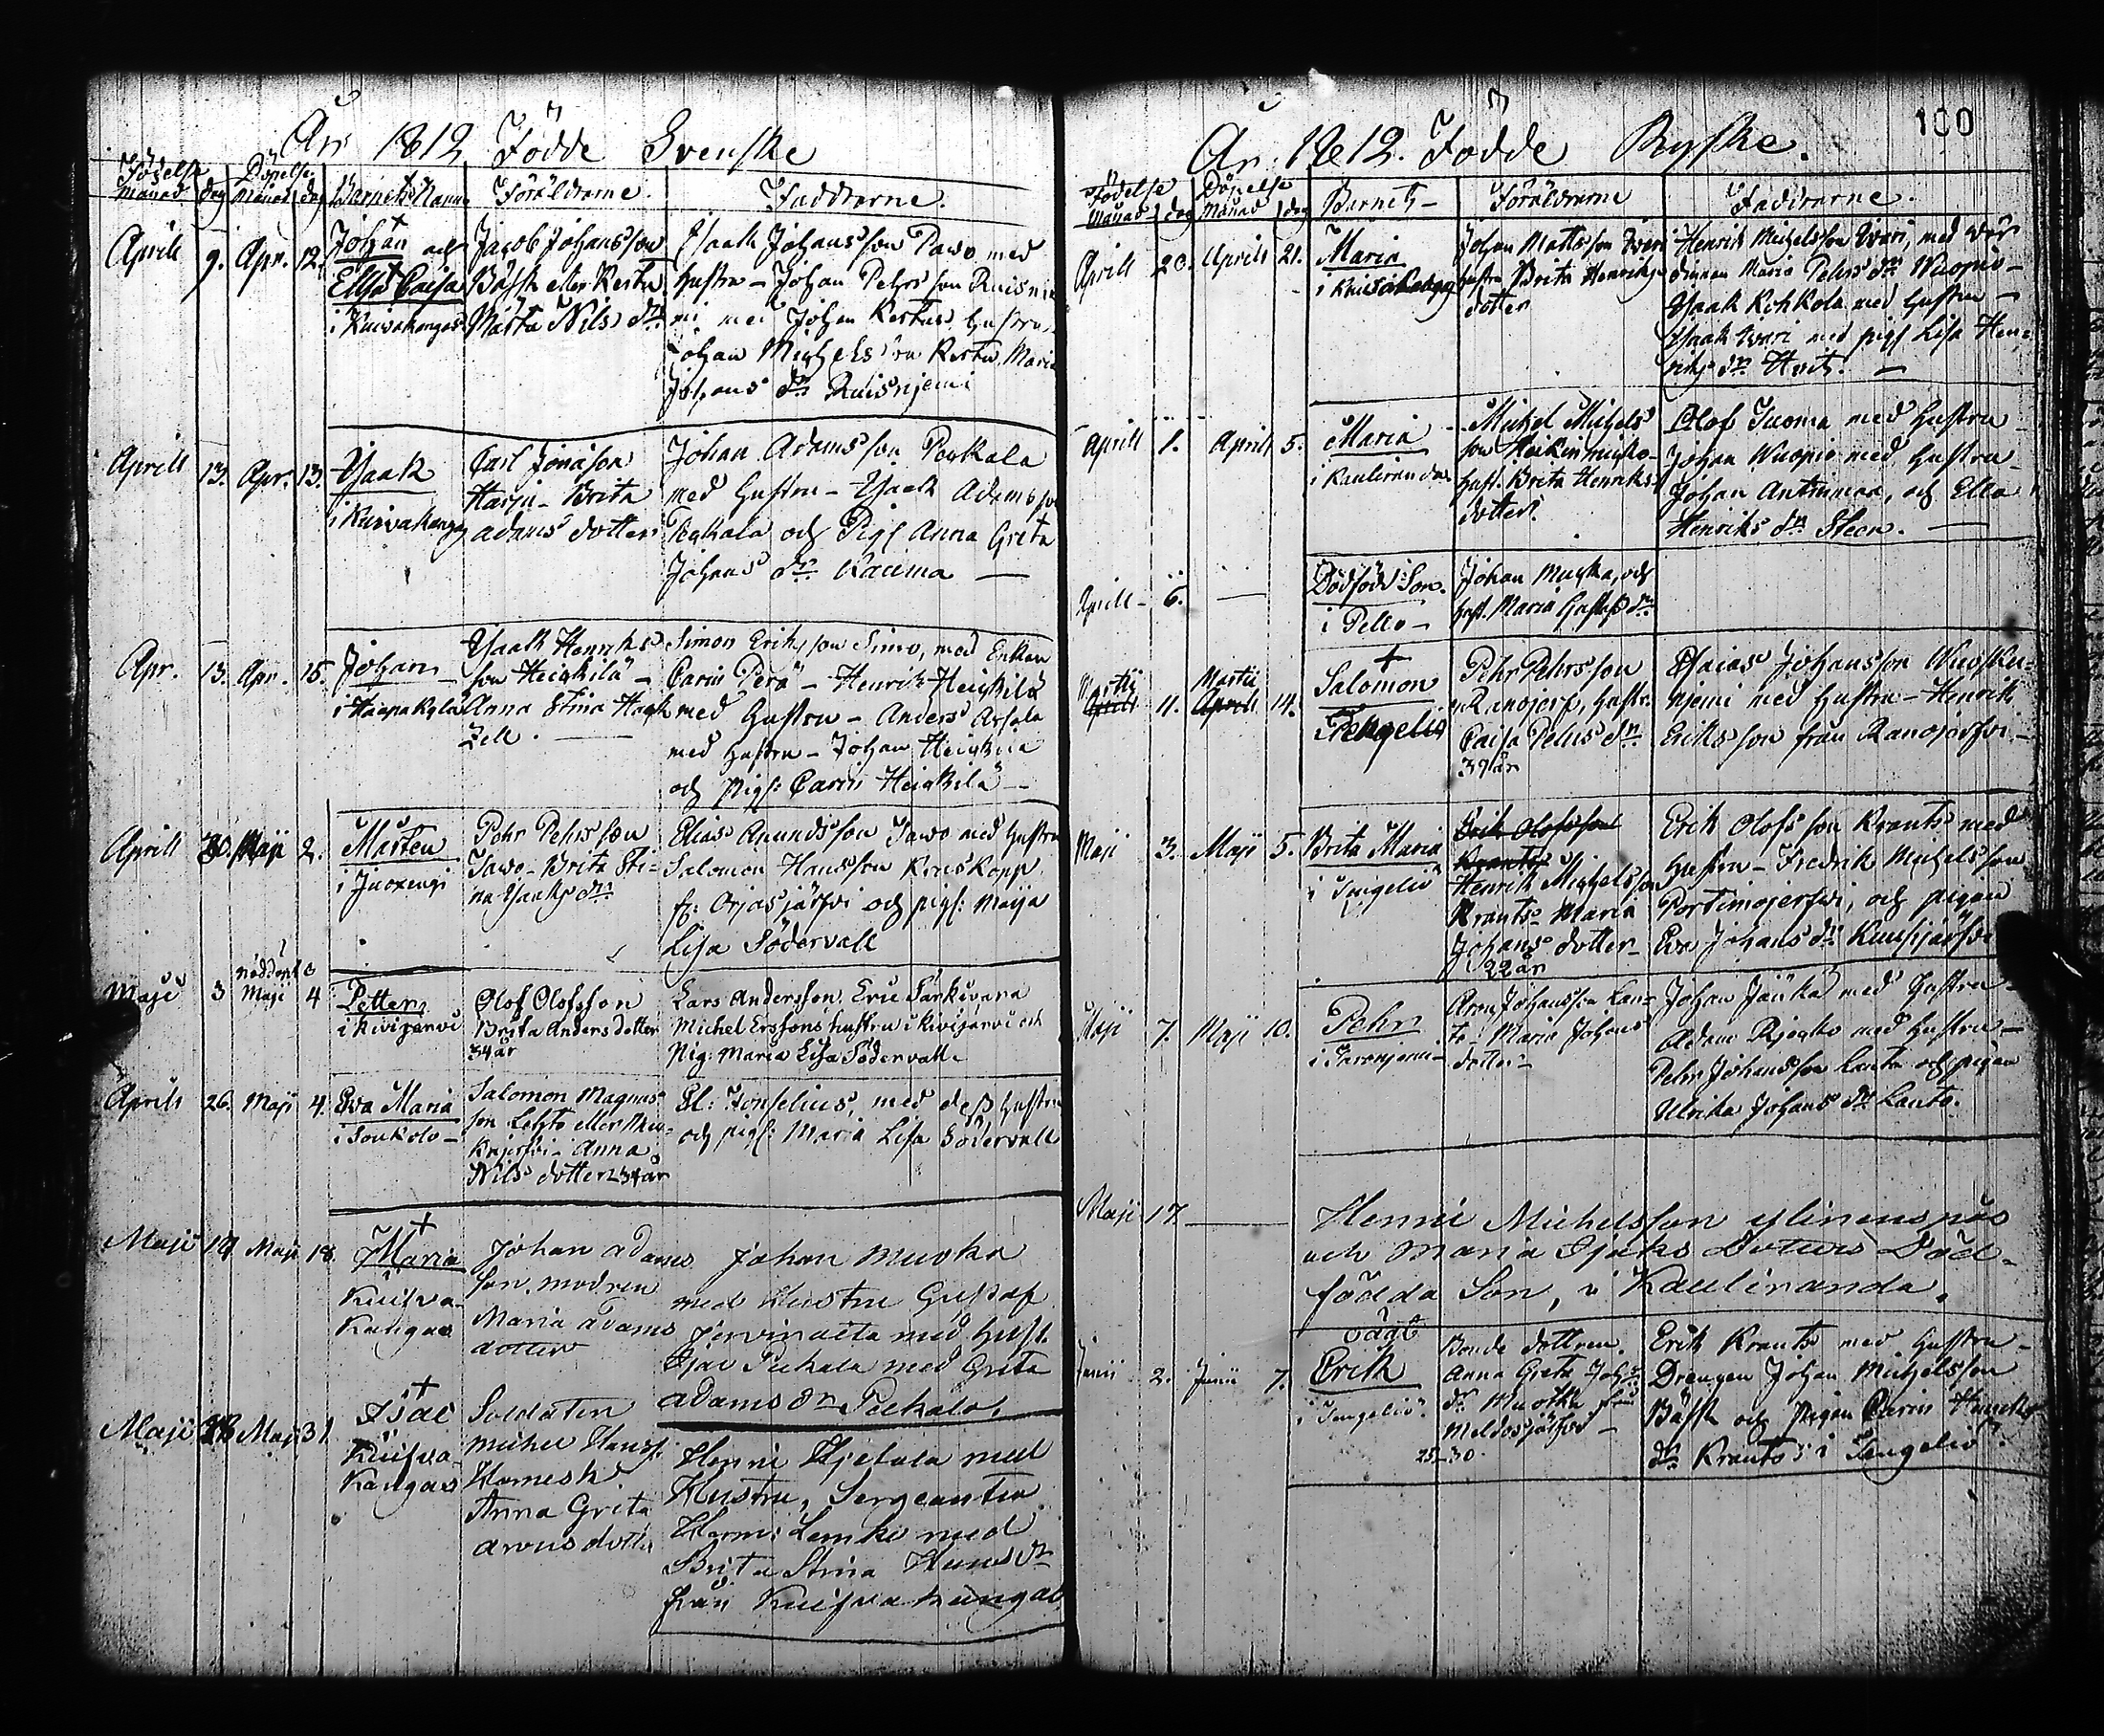 År 1812 Födde Svenske
Födelse Månad dag Döpelse Månad dag Barnets Namn Föräldrarne. Faddrarne.
Aprill 9. Apr. 12.
Johan och
Ellsa Caisa
i Kuivakangas
Jacob Johansson
Bäsk eller Kestu
Märta Nils dr
Isaak Johansson Pawo med
hustru - Johan Pehrs son Ruisnie
mi med Johan Kestus hustru
Johan Michels son Kestu, Maria
Johans dr Ruisnjemi
Aprill 13. Apr. 13.
Isaak
i Kuivakangas
Carl Jonasson
Harju - Brita
Adams dotter
Johan Adamsson Peekala
med hustru - Isaak Adamsson
Peekala och Pig. Anna Greta
Johans dr Kauma
Apr. 13. Apr. 15.
Johan
i Haapakylä
Isaak Henriks
son Heickilä -
Anna Stina Haak
zell.
Simon Eriksson Simo, med Enkan
Carin Perä - Henrik Heickilä
med hustru - Anders Assala
med hustru - Johan Heickilä
och pig: Carin Heickilä
Aprill 30. Maji 2.
Mårten
i Juoxengi
Pehr Pehrsson
Jawo - Brita Sti-
na Isaks dr
Elias Anundsson Jawo med hustru
Salomon Hansson Kerskopp
fr: Orjasjärfvi och pig: Maija
Lisa Södervall
Maji 3 nöddöpt 3 Maji 4
Petter
i Kivijärvi
Olof Olofsson
Brita Anders dotter
34 år
Lars Andersson Eric Särkivara
Michel Erssons hustru i Kivijärvi och
Pig: Maria Lisa Södervall
Aprill 26. Maji 4.
Eva Maria
i Soukolo -
Salomon Magnus
son Lehto eller Mu-
Anna
Nils dotter 34 år
El: Fonselius, med dess hustru
och pig: Maria Lisa Södervall
Maji 17 Maji 18
Maria
Kuifva-
Kangas
Johan Adams
son, modren
Maria Adams
dotter
Johan Muoka
med Hustru Gustaf
Jervinatta med Hust.
Isac Peekala med Greta
Adams dr Peekala,
Maji 28 Maji 31
Isac
Kuifva-
Kangas
Soldaten
Michel Hanss:
Harnesk
Anna Greta
Arvus dotter
Henric Hjetala med
Hustru, Sergeanten
Herm: Lemke med
Brita Stina Hans dr
från Kuifvakangas
100
År 1812. Födde Ryske.
Födelse Månad dag Döpelse Månad dag Barnets - Föräldrarne Faddrarne.
Aprill 20. Aprill 21.
Maria
i Kuivakangas
Johan Matts son Iwari
hustru Brita Henriks
dotter
Henrik Michelsson Iwari, med wär
dinnan Maria Pehrs dr Wuopio -
Isaak Kohkola med hustru -
Isaak Iwari med pig. Lisa Hen-
riks dr
Aprill 1. Aprill 5.
Maria
i Kaulirinda
Michel Michels
son Heikinmicko-
hust. Brita Henriks
dotter.
Olof Tuoma med hustru
Johan Wuopio med hustru
Johan Antinmaa, och Ella
Henriks dr Steen.
Aprill - 6.
Dödfödd Son.
i Pello -
Johan Muckka, och
hust. Maria Gustafs dr
Martii Aprill 11. Martii Aprill 14.
Salomon
i Tengeliö
Pehr Pehrsson
Ranojerf, hustr.
Caisa Pehrs dr
39 år
Esaias Johansson Wuosku-
njemi med hustru - Henrik
Eriksson från Ranojärfvi -
Maji 3. Maji 5.
Brita Maria
i Tengeliö
Erik Olofsson
Krants
Henrik Michelsson
Krants Maria
Johans dotter -
22 år
Erik Olofsson Krants med
hustru - Fredrik Michelsson
Portimojerfvi, och pigan
Eva Johans dr Kuusijärfvi
Maji 7. Maji 10.
Pehr
i Turonjemi -
Aron Johansson Lan-
to - Maria Johans
dotter -
Johan Jänkä med hustru -
Adam Rjockto med hustru -
Pehr Johansson Lanto och pigan
Ulrika Johans dr Lanto.
Maji 17.
Henric Michelsson Ylinenpää
och Maria Isaks Dotters Död-
födda Son, i Kauliranda.
Junii 2. Junii 7.
oächt
Erik
i Tengeliö
Bonde dottren
Anna Greta Johans
dr Muotka från
Meldosjärfvi -
25-30.
Erik Krants med hustru -
Drengen Johan Michelsson
Bäsk och pigan Carin Henriks
dr Krants i Tengeliö.